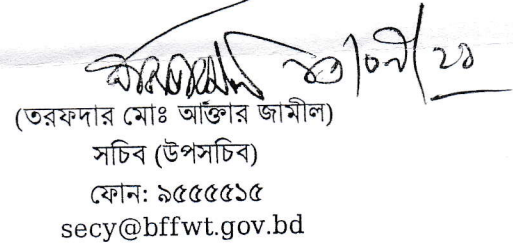 (তরফদার মোঃ আক্তার জামীল)
সচিব (উপসচিব)
ফোন: ৯৫৫৫৫১৫
secy@bffwt.gov.bd